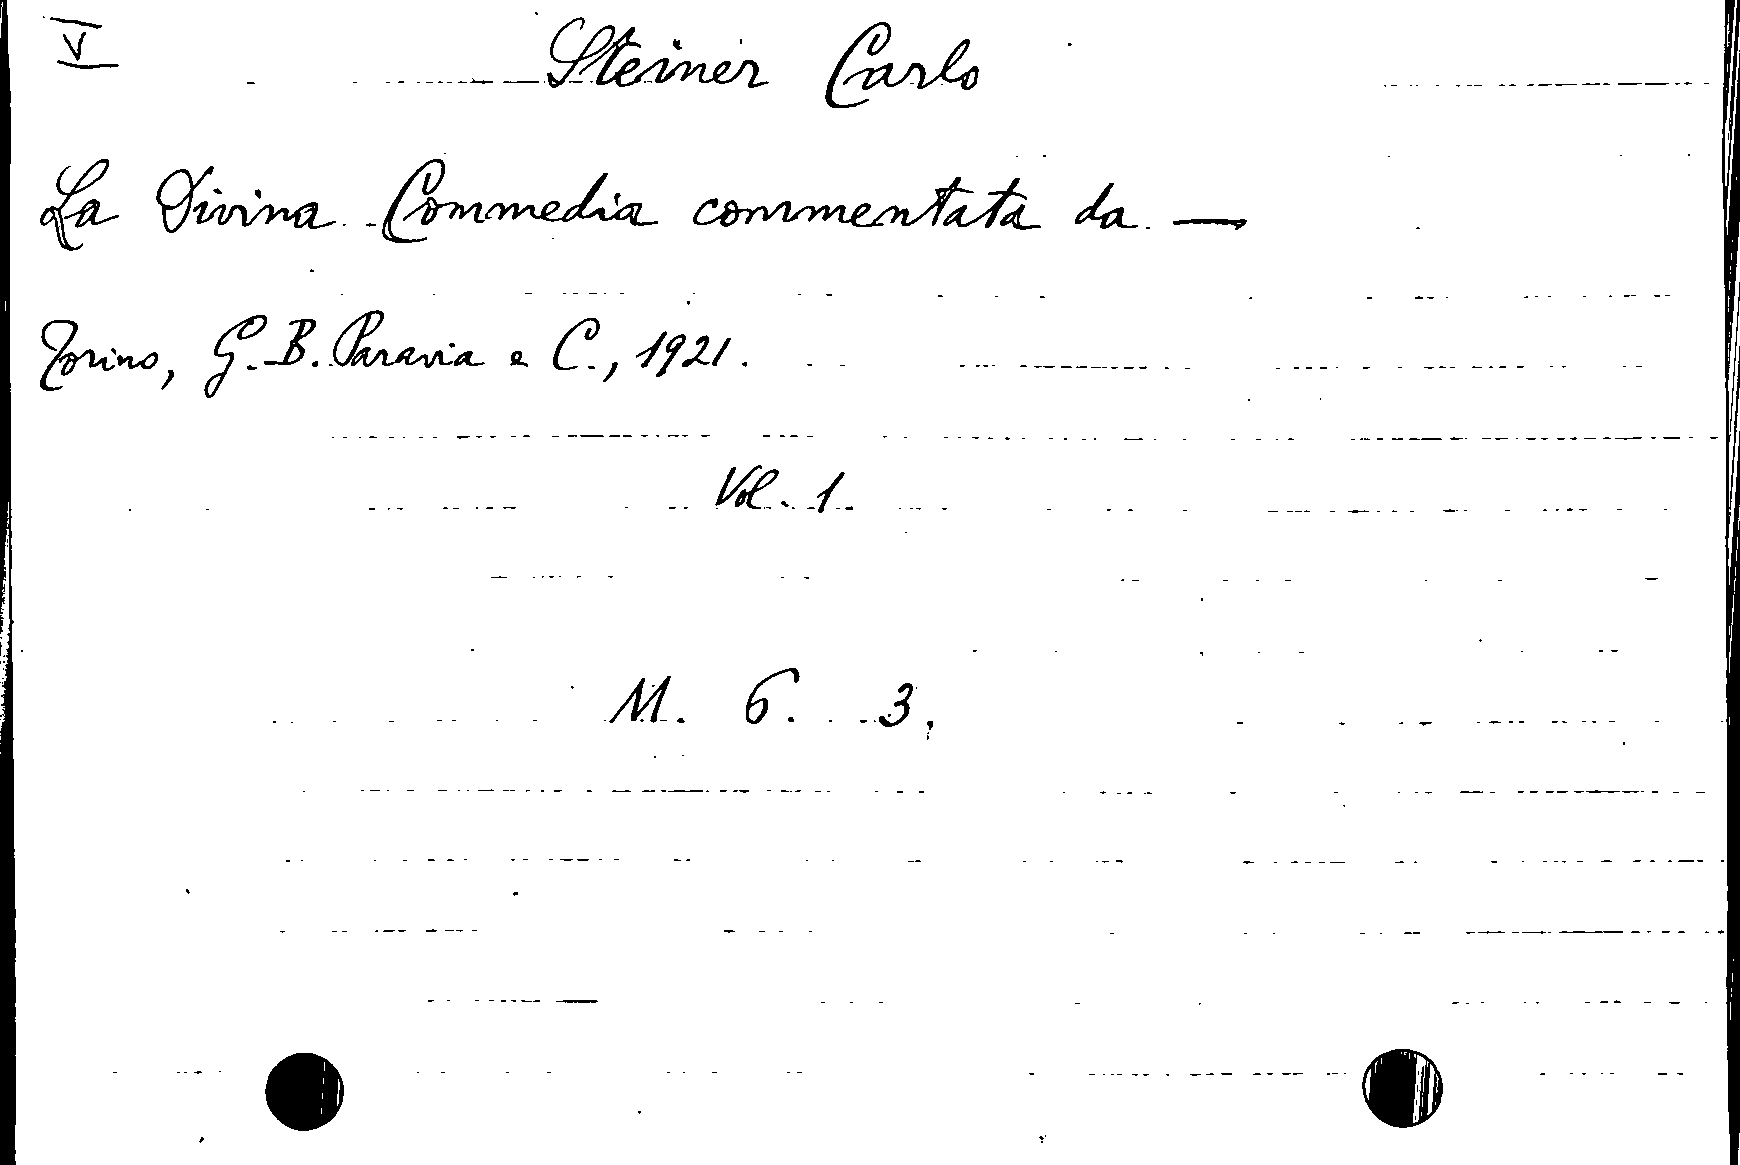 V
Steiner Carlo
La Divina Commedia commentata da —
Torino, G. B. Paravia e C., 1921.
Vol. 1.
M. 6. 3.